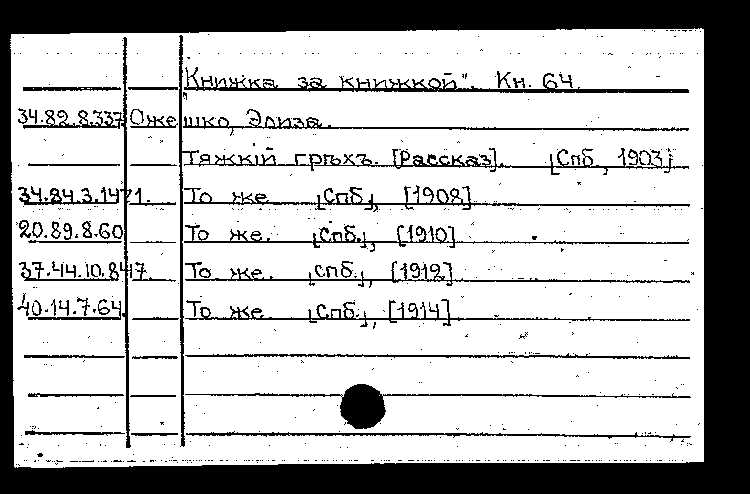 "Книжка за книжкой". Кн. 64.
34.82.8.337 Ожешко, Элиза.
Тяжкій грѣхъ. [Рассказ]. [Спб., 1903]
34.84.3.1471. То же [Спб], [1908]
20.89.8.60 То же. [Спб.], [1910]
37.44.10.847. То же. [Спб.], [1912]
40.14.7.64. То же. [Спб.], [1914]